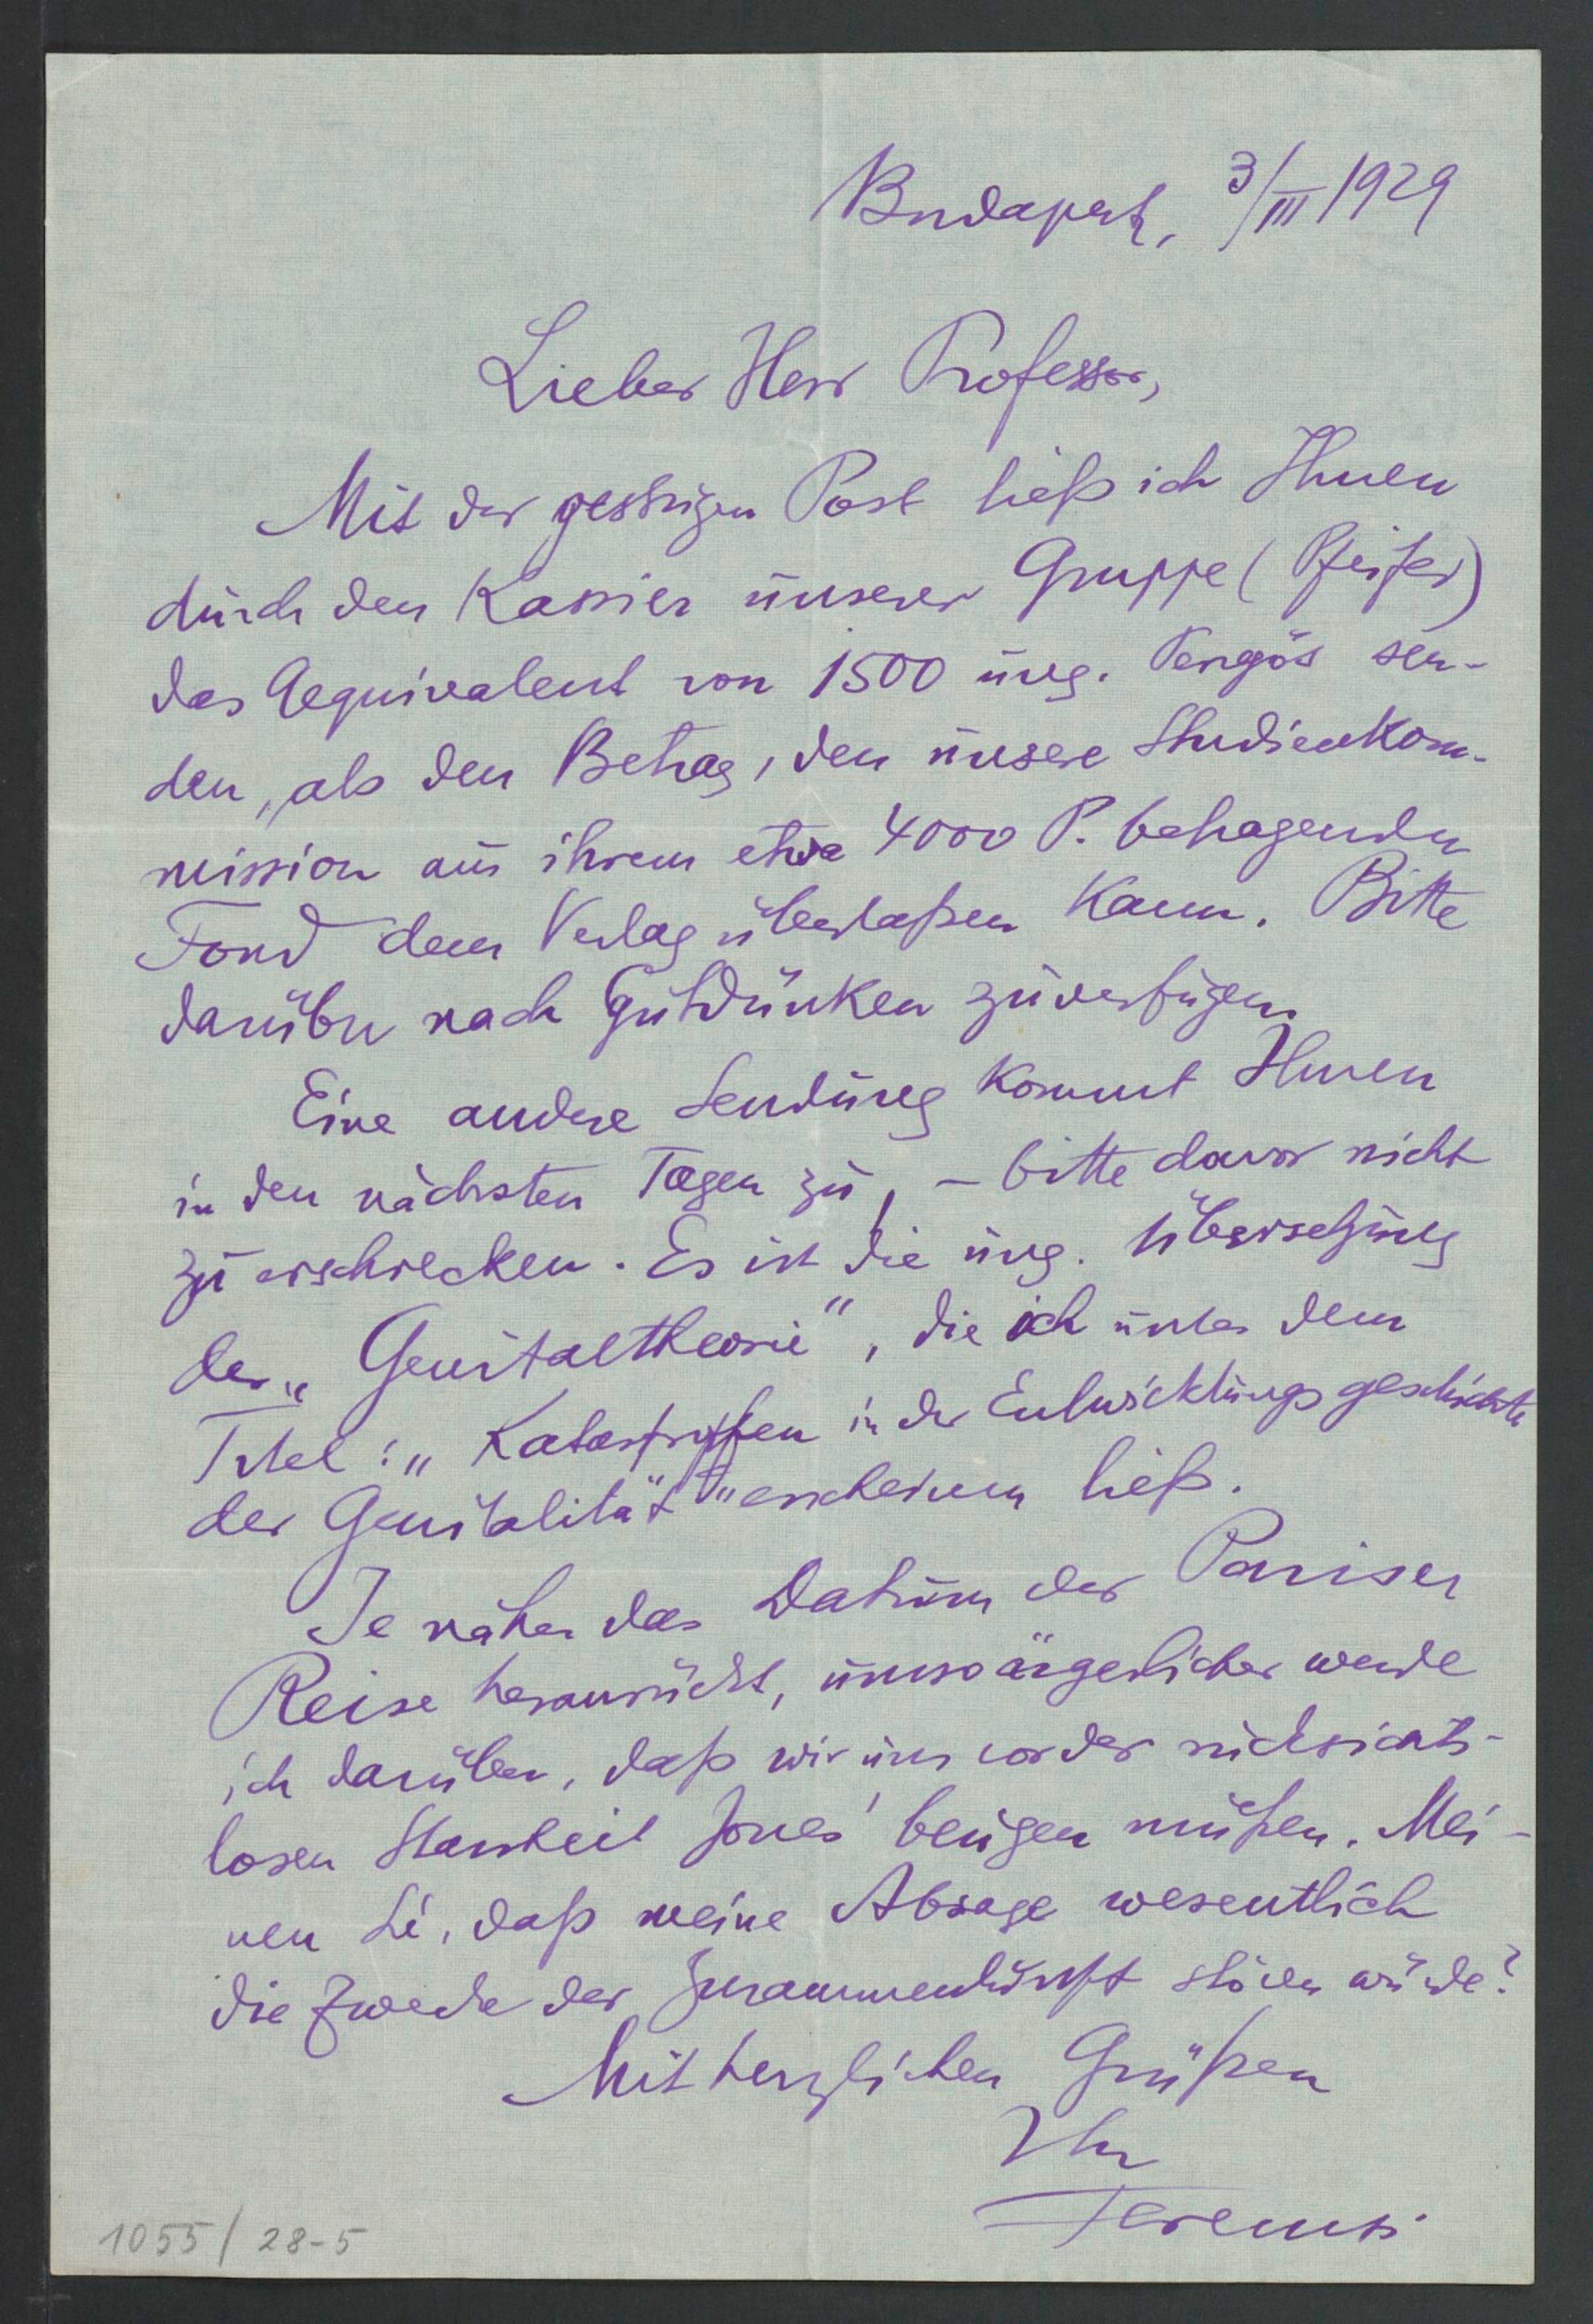 Budapest, 3/III 1929
Lieber Herr Professor,
Mit der gestrigen Post ließ ich Ihnen
durch den Kassier unserer Gruppe (Pfeifer)
das Aequivalent von 1500 ung. Pengös sen-
den, als den Betrag, den unsere Studienkom-
mission aus ihrem etwa 4000 P. betragenden
Fond dem Verlag überlaßen kann. Bitte
darüber nach Gutdünken zu verfügen.
Eine andere Sendung kommt Ihnen
in den nächsten Tagen zu, – bitte davor nicht
zu erschrecken. Es ist die ung. Übersetzung
der „Genitaltheorie", die ich unter dem
Titel: „Katastrofen in der Entwicklungsgeschichte
der Genitalität" erscheinen ließ.
Je näher das Datum der Pariser
Reise heranrückt, umso ärgerlicher werde
ich darüber, daß wir uns vor der rücksichts-
losen Starrheit Jones' beugen müßen. Mei-
nen Sie, daß meine Absage wesentlich
die Zwecke der Zusammenkunft stören würde?
Mit herzlichen Grüßen
Ihr
Ferenczi
1055/28-5